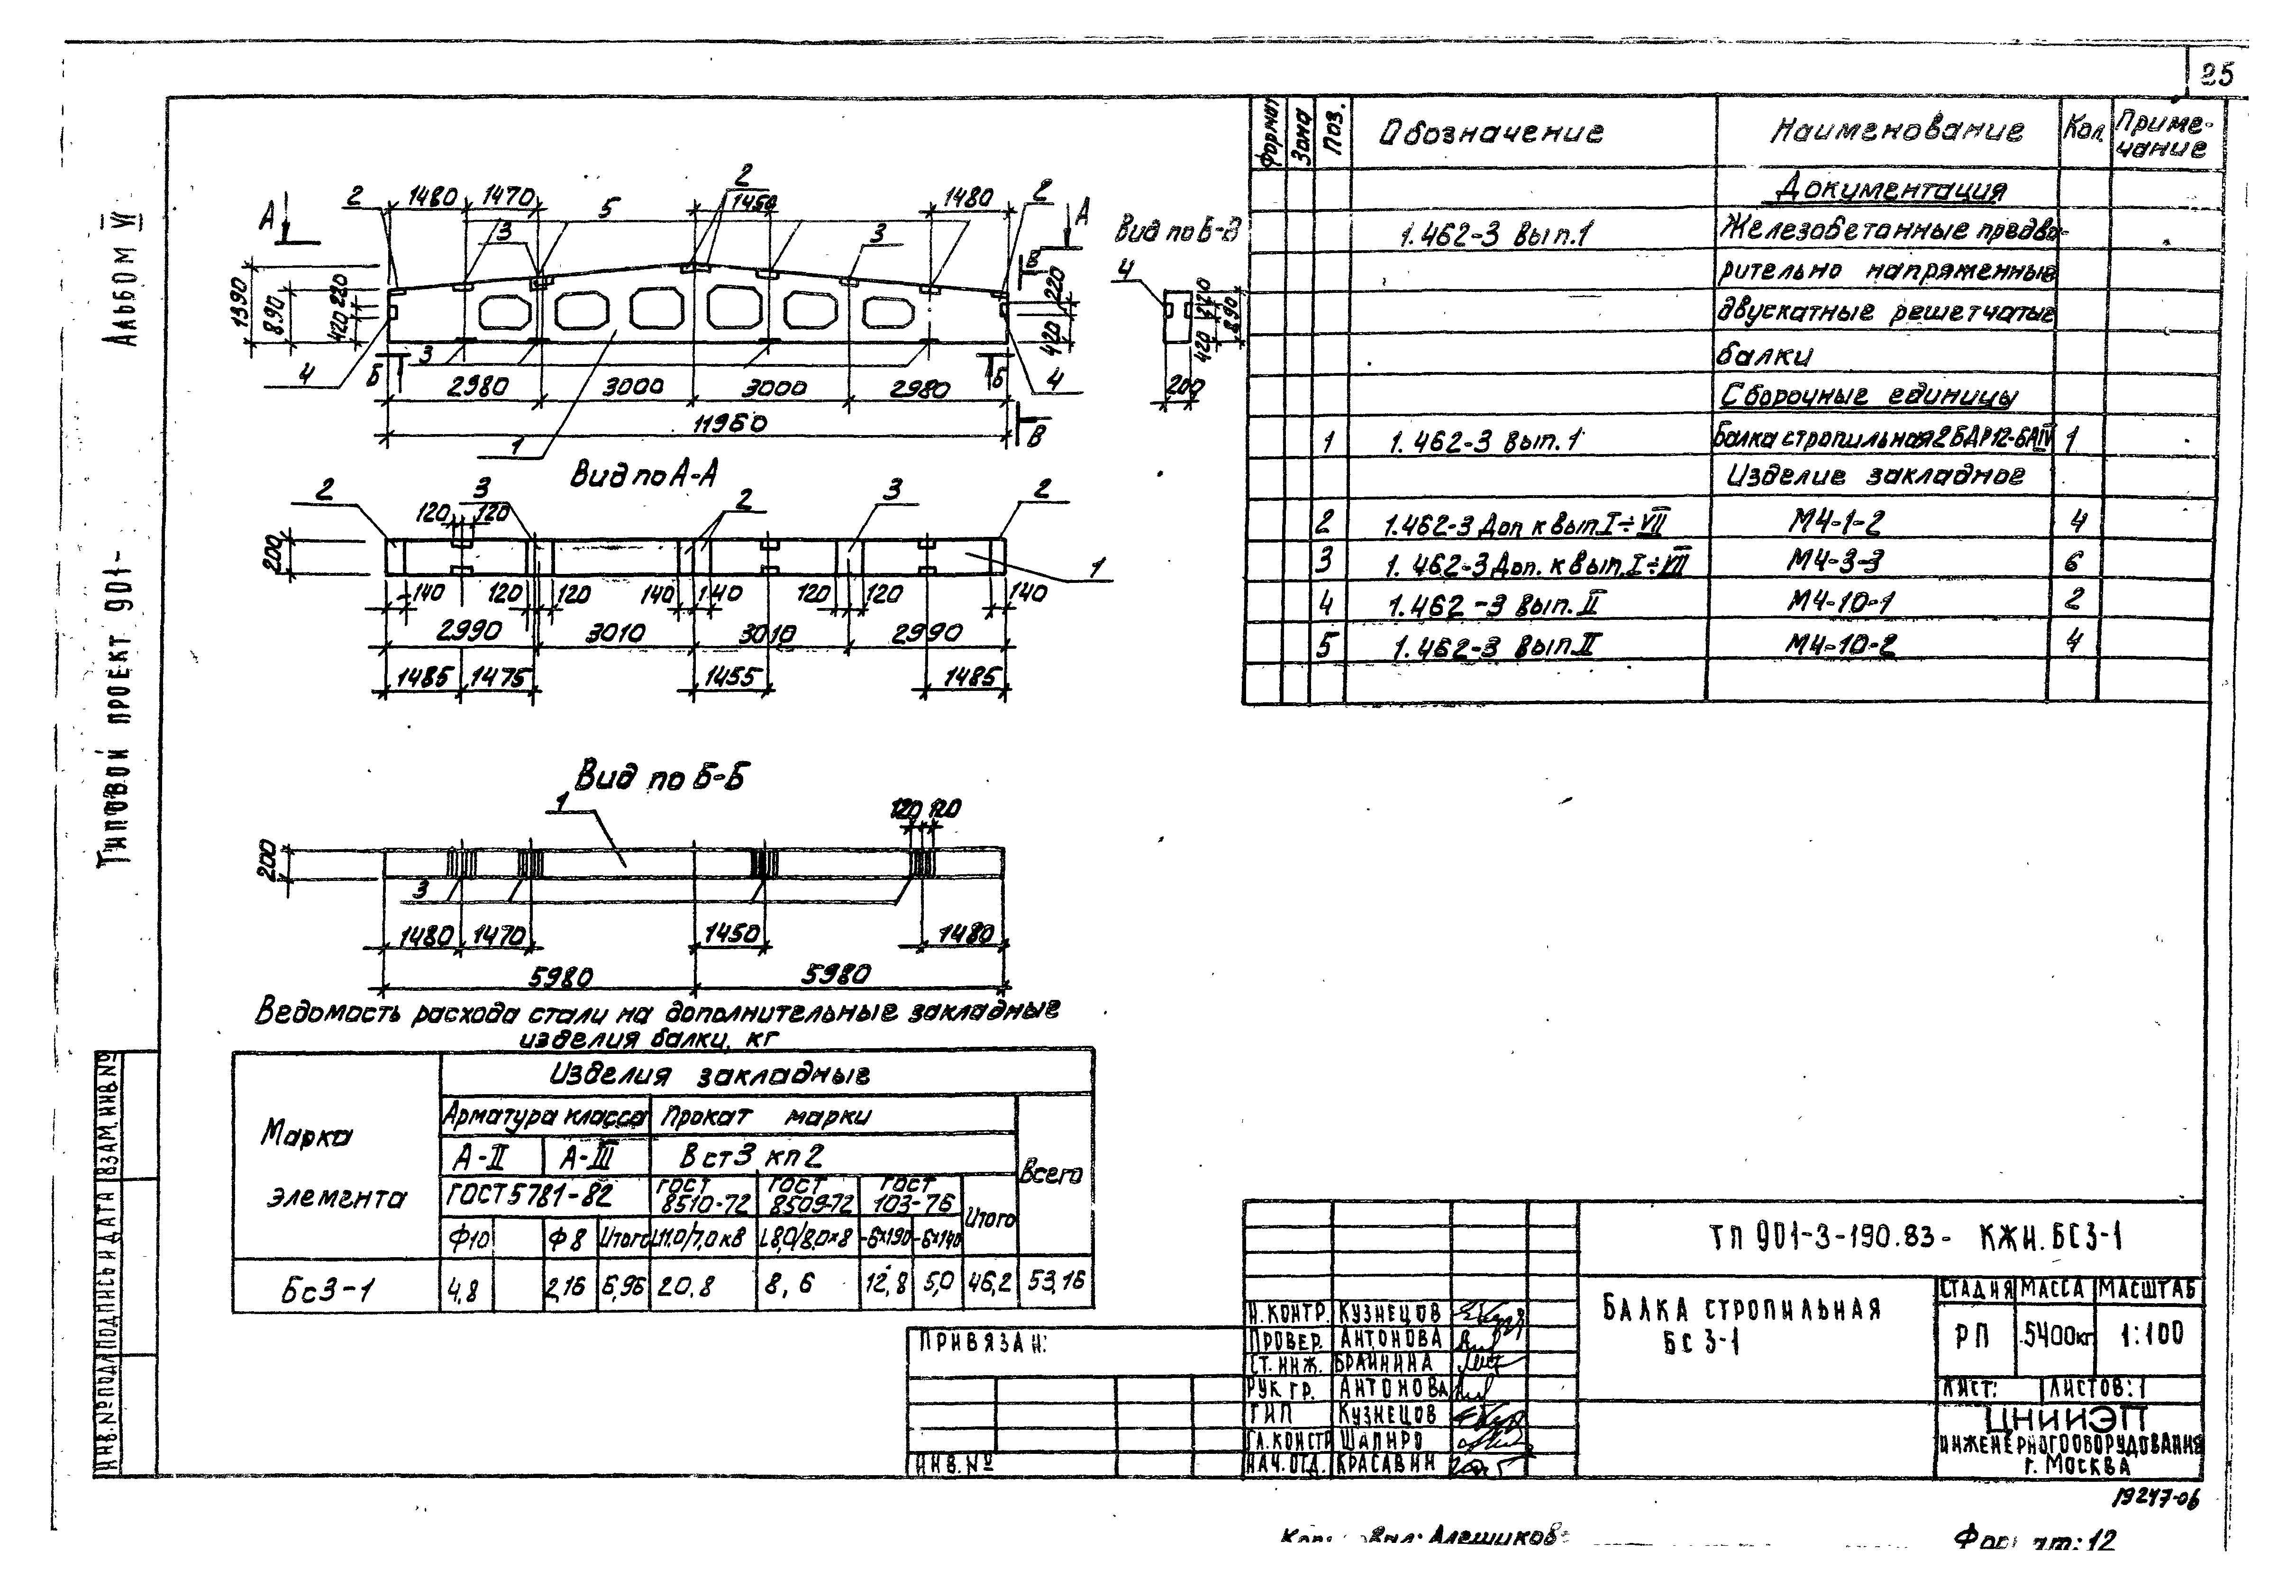 25
Альбом VI
Типовой проект 901-
2 1480 1470 5 2 1450 1480 2
А А
3 3
В
1390 890 220 420
220 420
4 3 Б Б 4
2980 3000 3000 2980
11960
1 В
Вид по Б-В
4
220 890 420
200
Вид по А-А
2 3 2 3 2
120 120
200
1
140 120 120 140 140 120 120 140
2990 3010 3010 2990
1485 1475 1455 1485
Вид по Б-Б
1
120 120
200
3
1480 1470 1450 1480
5980 5980
Ведомость расхода стали на дополнительные закладные
изделия балки, кг
Марка элемента
Изделия закладные
Арматура класса Прокат марки
А-II А-III В ст3 кп2
Всего
ГОСТ 5781-82 ГОСТ 8510-72 ГОСТ 8509-72 ГОСТ 103-76
Итого
Ф10 Ф8 Итого L11.0/7,0х8 L8,0/8,0×8 -6×190 -6×140
Бс3-1 4,8 2,16 6,96 20,8 8,6 12,8 5,0 46,2 53,16
Формат Зона Поз. Обозначение Наименование Кол. Приме-
чание
Документация
1.462-3 Вып.1 Железобетонные предва-
рительно напряженные
двускатные решетчатые
балки
Сборочные единицы
1 1.462-3 Вып.1 Балка стропильная 2БДР12-6АIV 1
Изделие закладное
2 1.462-3 Доп к вып.I÷VII М4-1-2 4
3 1.462-3 Доп. к вып.I÷VII М4-3-3 6
4 1.462-3 Вып.II М4-10-1 2
5 1.462-3 Вып.II М4-10-2 4
ТП 901-3-190.83- КЖИ.БС3-1
Балка стропильная
БС 3-1
Стадия Масса Масштаб
РП 5400кг 1:100
Лист: Листов: 1
ЦНИИЭП
инженерного оборудования
г. Москва
Н.контр. Кузнецов
Провер. Антонова
Ст. инж. Брайнина
Рук. гр. Антонова
ГИП Кузнецов
Гл.констр Шапиро
Нач.отд. Красавин
Привязан:
Инв.№
Инв.№ подл Подпись и дата Взам.инв.№
19247-06
Алешиков
12